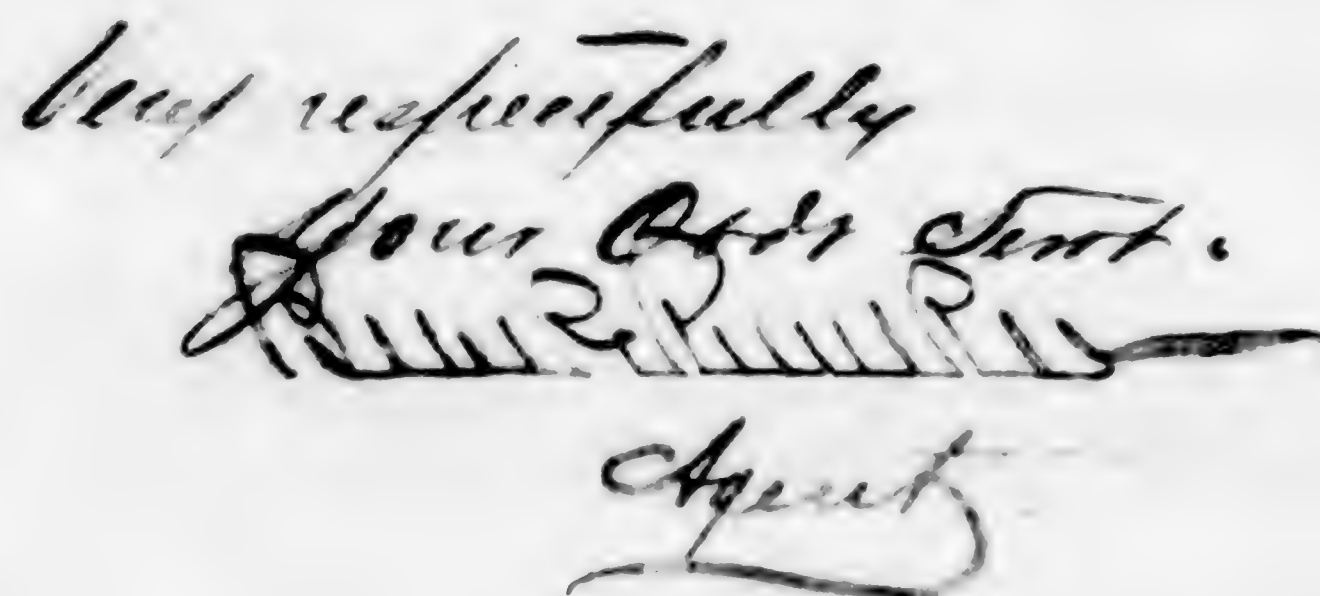 Very respectfully
Your Obdt Servt.
Agent